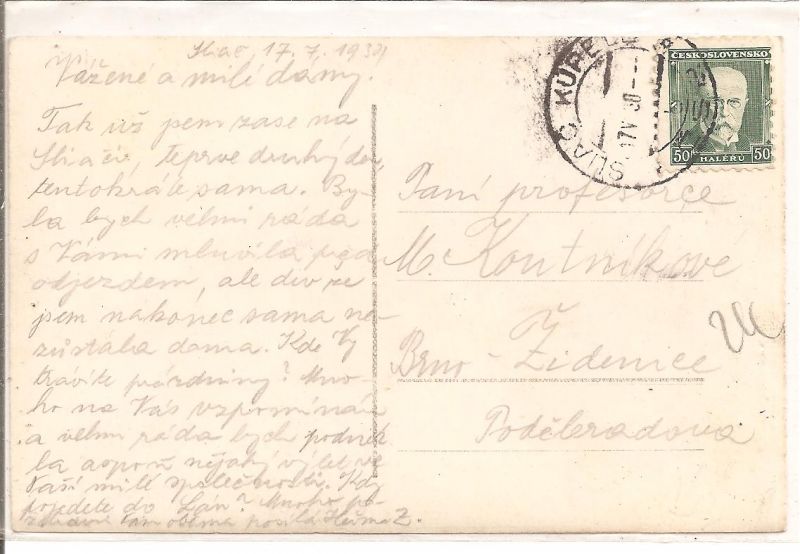 Sliač, 17. 7. 1930
Vážené a milé dámy.
Tak už jsem zase na
Sliači, teprve druhý den,
tentokráte sama. By-
la bych velmi ráda
s Vámi mluvila před
odjezdem, ale div že
jsem nakonec sama ne-
zůstala doma. Kde Vy
trávíte prázdniny? Mno-
ho na Vás vzpomínám
a velmi ráda bych podnik-
la aspoň nějaký výlet ve
Vaší milé společnosti. Kdy
pojedete do Lán? Mnoho po-
zdravů Vám oběma posílá Z.
SLIAČ KÚPELE
17 V 30
ČESKOSLOVENSKO
50 HALÉŘŮ 50
Paní profesorce
M. Koutníkové
Brno - Židenice
Poděbradova